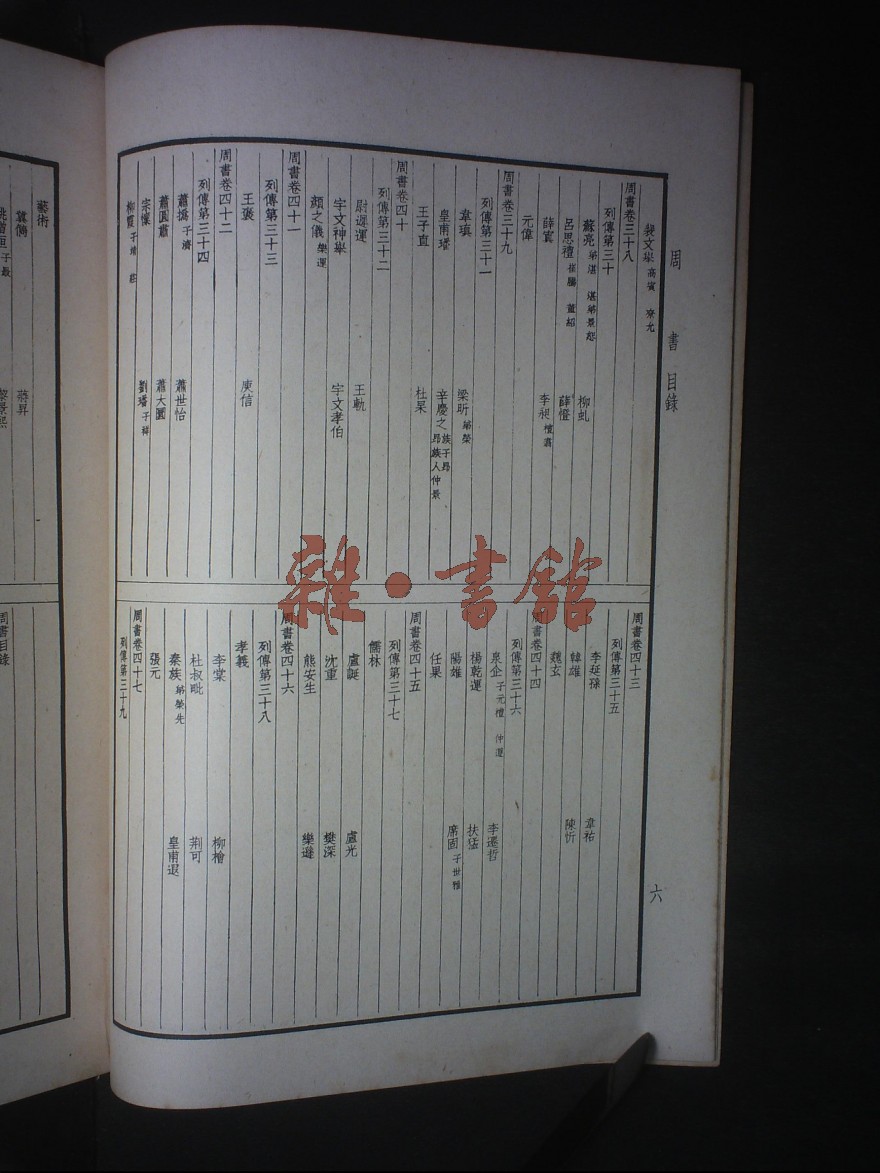 周書目錄
六
裴文舉 高賓 寮允
周書卷三十八
列傳第三十
蘇亮 弟湛 湛弟景恕 柳虬
呂思禮 崔騰 董紹 薛憕
薛寘 李昶 檀翥
元偉
周書卷三十九
列傳第三十一
韋瑱 梁昕 弟榮
皇甫璠 辛慶之 族子昂 昂族人仲景
王子直 杜杲
周書卷四十
列傳第三十二
尉遲運 王軌
宇文神舉 宇文孝伯
顏之儀 樂運
周書卷四十一
列傳第三十三
王褒 庾信
周書卷四十二
列傳第三十四
蕭撝 子濟 蕭世怡
蕭圓肅 蕭大圜
宗懔 劉璠 子祥
柳霞 子靖 莊
周書卷四十三
列傳第三十五
李延孫 韋祐
韓雄 陳忻
魏玄
周書卷四十四
列傳第三十六
泉企 子元禮 仲遵 李遷哲
楊乾運 扶猛
陽雄 席固 子世雅
任果
周書卷四十五
列傳第三十七
儒林
盧誕 盧光
沈重 樊深
熊安生 樂遜
周書卷四十六
列傳第三十八
孝義
李棠 柳檜
杜叔毗 荆可
秦族 弟榮先 皇甫遐
張元
周書卷四十七
列傳第三十九
藝術
冀儁 蔣昇
姚僧垣 子最 黎景熙
周書目錄
雜·書館